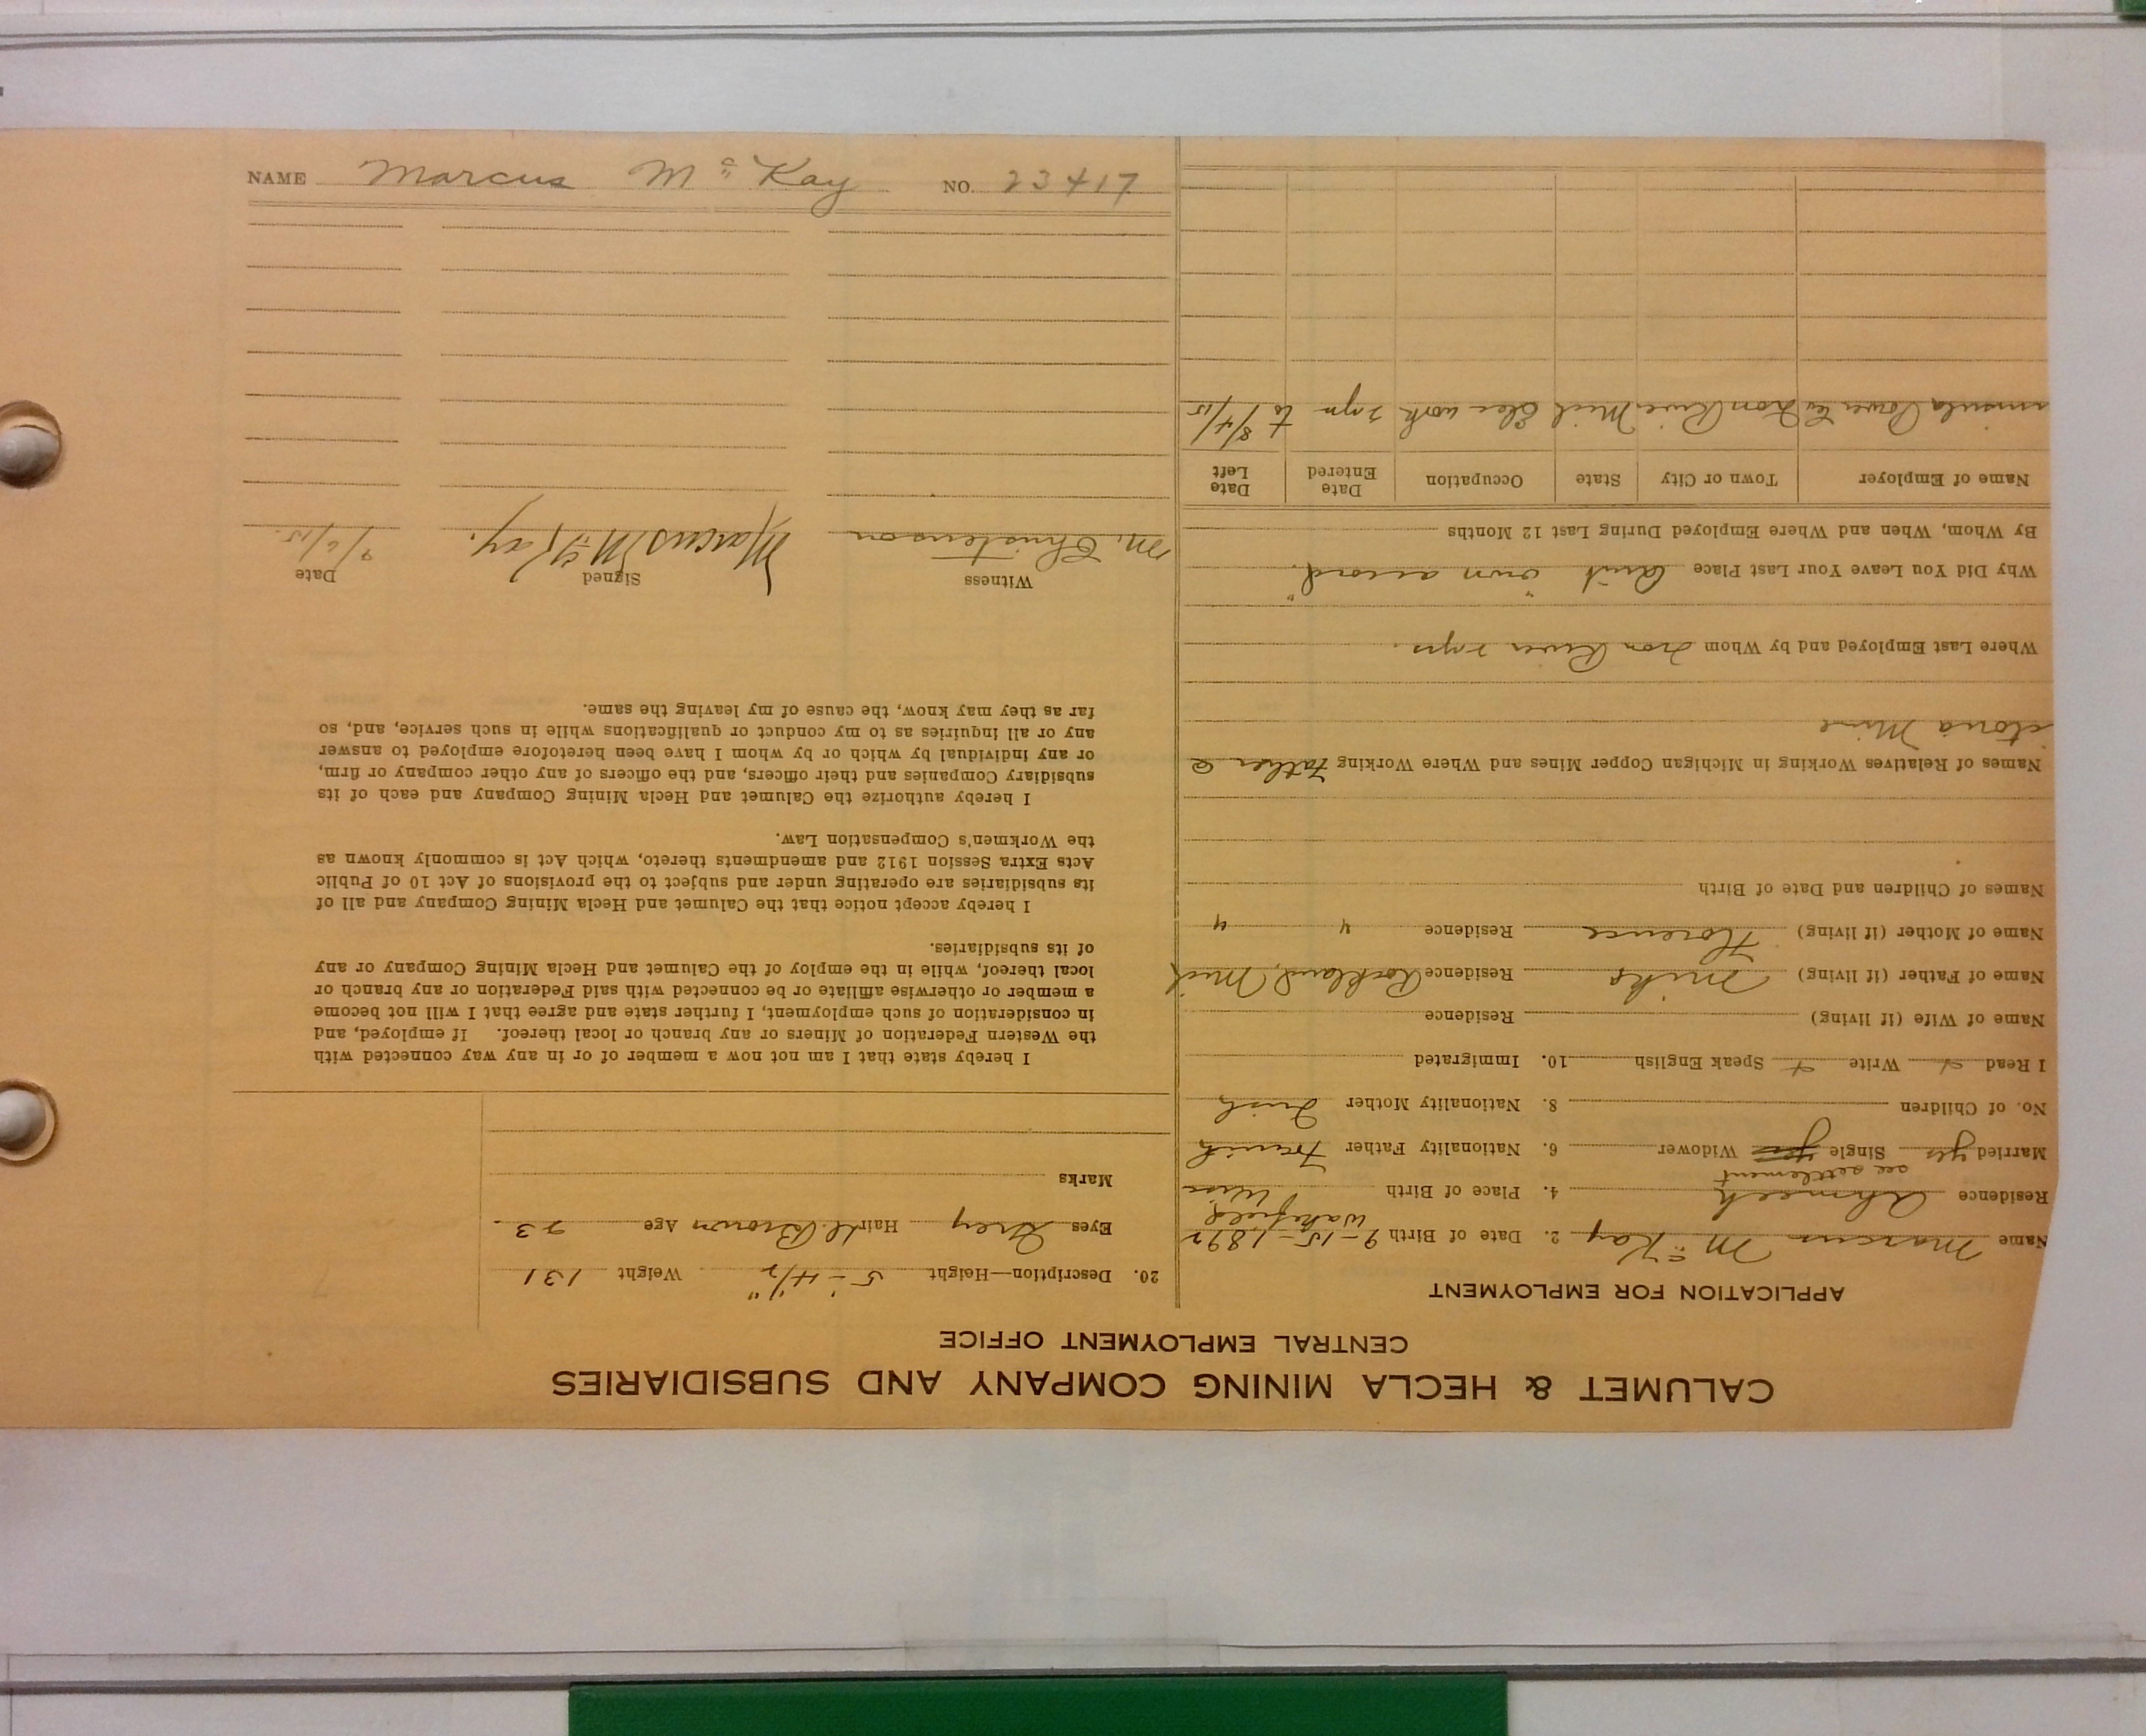 CALUMET & HECLA MINING COMPANY AND SUBSIDIARIES
CENTRAL EMPLOYMENT OFFICE
APPLICATION FOR EMPLOYMENT
Name Marcus McKay 2. Date of Birth 9-15-1892
Residence Ahmeek 4. Place of Birth Wakefield
see settlement
Married yes Single Widower 6. Nationality Father French
No. of Children 8. Nationality Mother Irish
I Read Write Speak English 10. Immigrated
Name of Wife (if living) Residence
Name of Father (if living) Mike Residence Rockland, Mich
Name of Mother (if living) Florence Residence " "
Names of Children and Date of Birth
Names of Relatives Working in Michigan Copper Mines and Where Working Father @
ictoria Mine
Where Last Employed and by Whom Iron River 2 yrs.
Why Did You Leave Your Last Place Quit "own accord"
By Whom, When and Where Employed During Last 12 Months
Name of Employer Town or City State Occupation Date Entered Date Left
ninsula Power Co Iron River Mich Elec work 2 yrs to 8/4/15
20. Description—Height 5'-4 1/2" Weight 131
Eyes Grey Hair D. Brown Age 23
Marks
I hereby state that I am not now a member of or in any way connected with
the Western Federation of Miners or any branch or local thereof. If employed, and
in consideration of such employment, I further state and agree that I will not become
a member or otherwise affiliate or be connected with said Federation or any branch or
local thereof, while in the employ of the Calumet and Hecla Mining Company or any
of its subsidiaries.
I hereby accept notice that the Calumet and Hecla Mining Company and all of
its subsidiaries are operating under and subject to the provisions of Act 10 of Public
Acts Extra Session 1912 and amendments thereto, which Act is commonly known as
the Workmen's Compensation Law.
I hereby authorize the Calumet and Hecla Mining Company and each of its
subsidiary Companies and their officers, and the officers of any other company or firm,
or any individual by which or by whom I have been heretofore employed to answer
any or all inquiries as to my conduct or qualifications while in such service, and, so
far as they may know, the cause of my leaving the same.
Witness Signed Date
M. Christenson Marcus McKay. 9/6/15.
NAME Marcus McKay NO. 23417